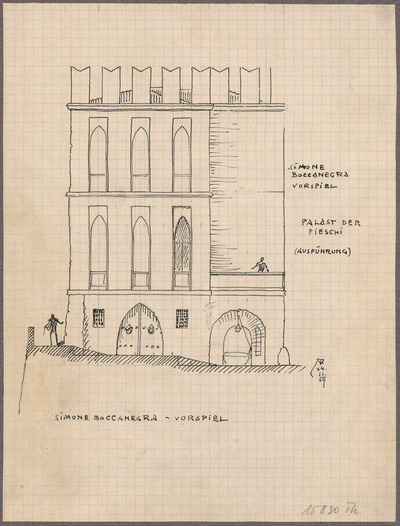 SIMONE
BOCCANEGRA
VORSPIEL
PALAST DER
FIESCHI
(AUSFÜHRUNG)
SIMONE BOCCANEGRA - VORSPIEL
15830 Th